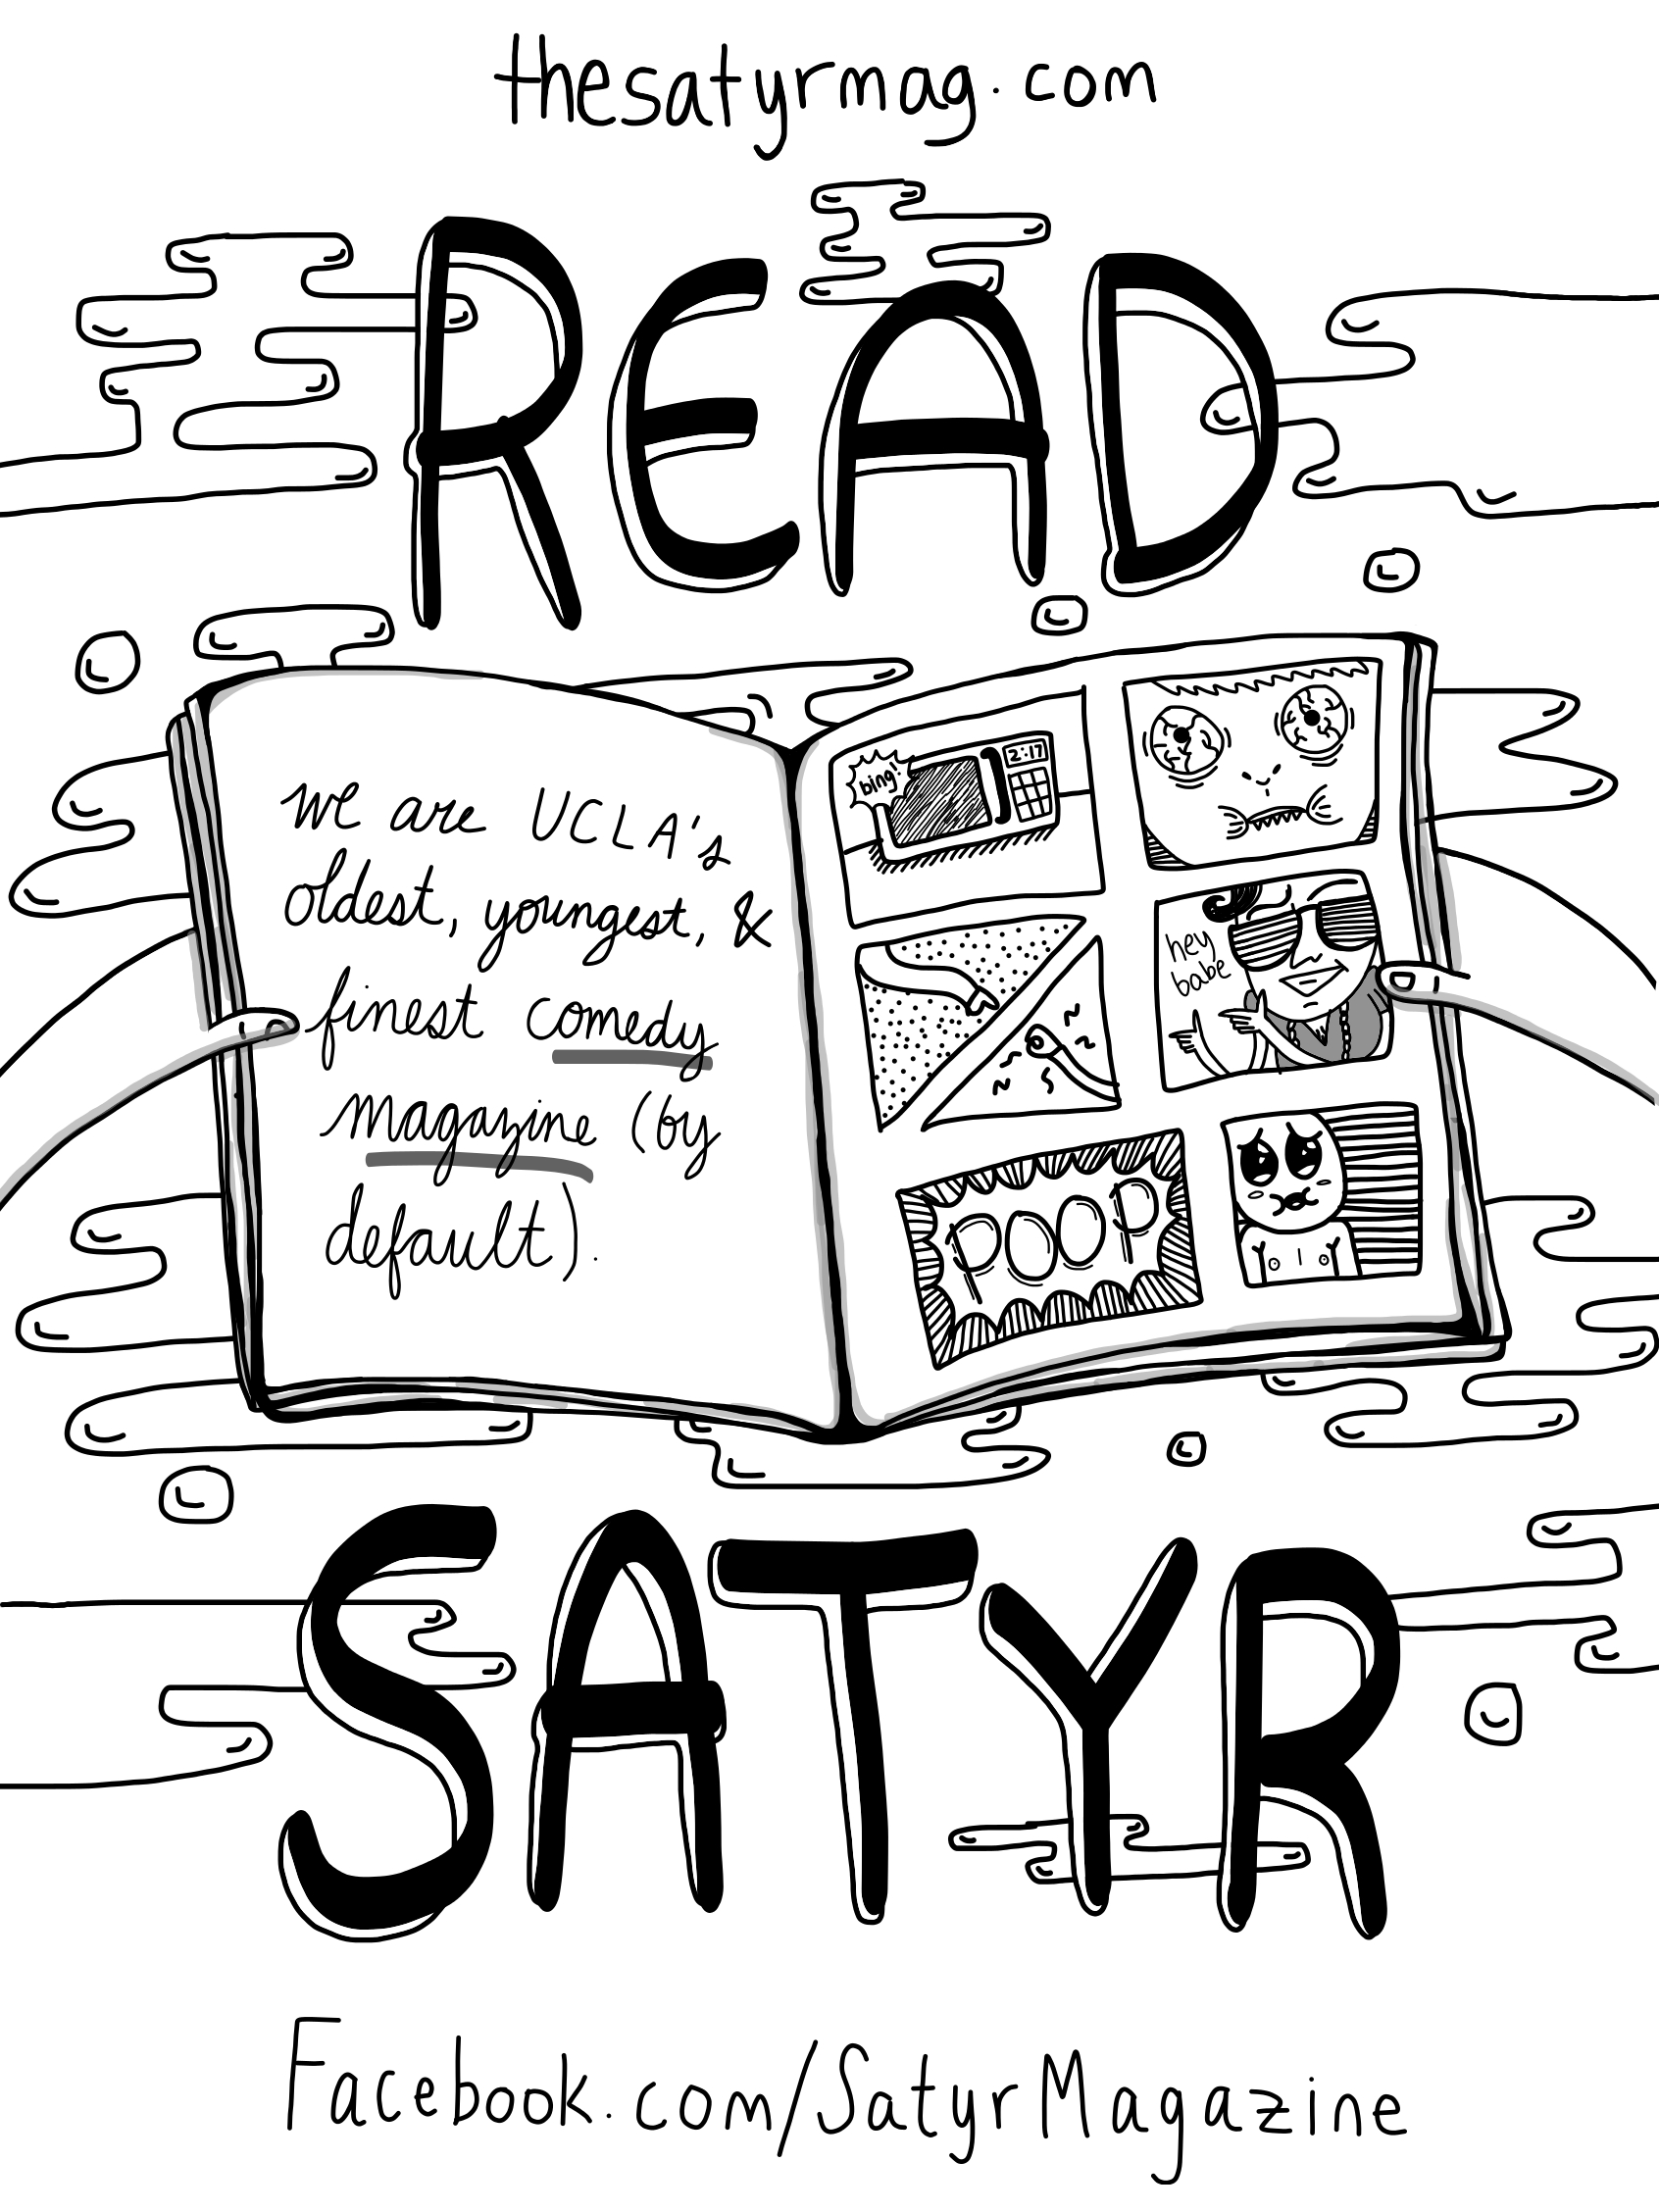 thesatyrmag.com
READ
We are UCLA's
oldest, youngest, &
finest comedy
magazine (by
default).
bing!
2:17
hey
babe
POOP
SATYR
Facebook.com/SatyrMagazine